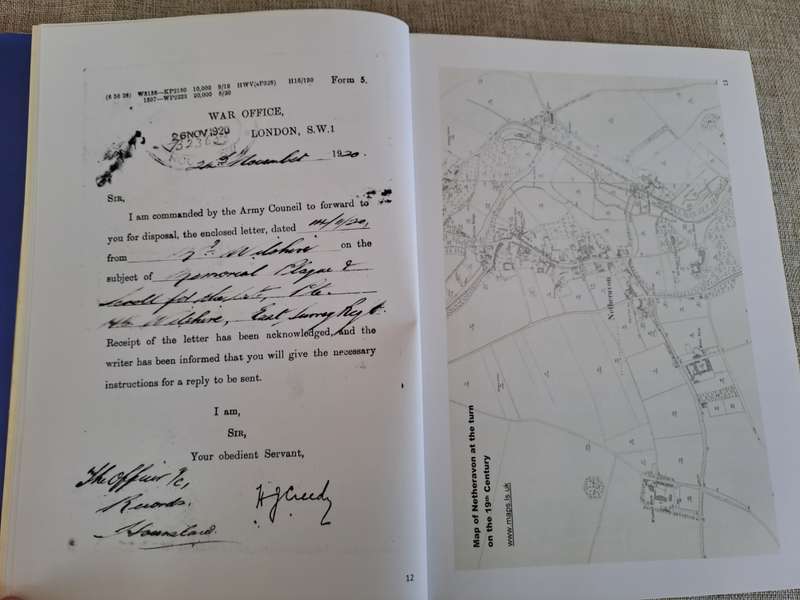 (6 36 28) W5185—KP2150 10,000 9/19 HWV(P328) H16/130 Form 5.
1507—WP2223 20,000 5/20
WAR OFFICE,
26 NOV 1920
LONDON, S.W.1
November 1920.
SIR,
I am commanded by the Army Council to forward to
you for disposal, the enclosed letter, dated
from Wilshire on the
subject of Memorial Plaque &
Scroll for the late, Pte.
Wilshire, East Surrey Regt.
Receipt of the letter has been acknowledged, and the
writer has been informed that you will give the necessary
instructions for a reply to be sent.
I am,
SIR,
Your obedient Servant,
The Officer i/c,
Records.
Hounslow
H J Creedy
12
13
Netheravon
Map of Netheravon at the turn
on the 19th Century
www.maps.is.uk